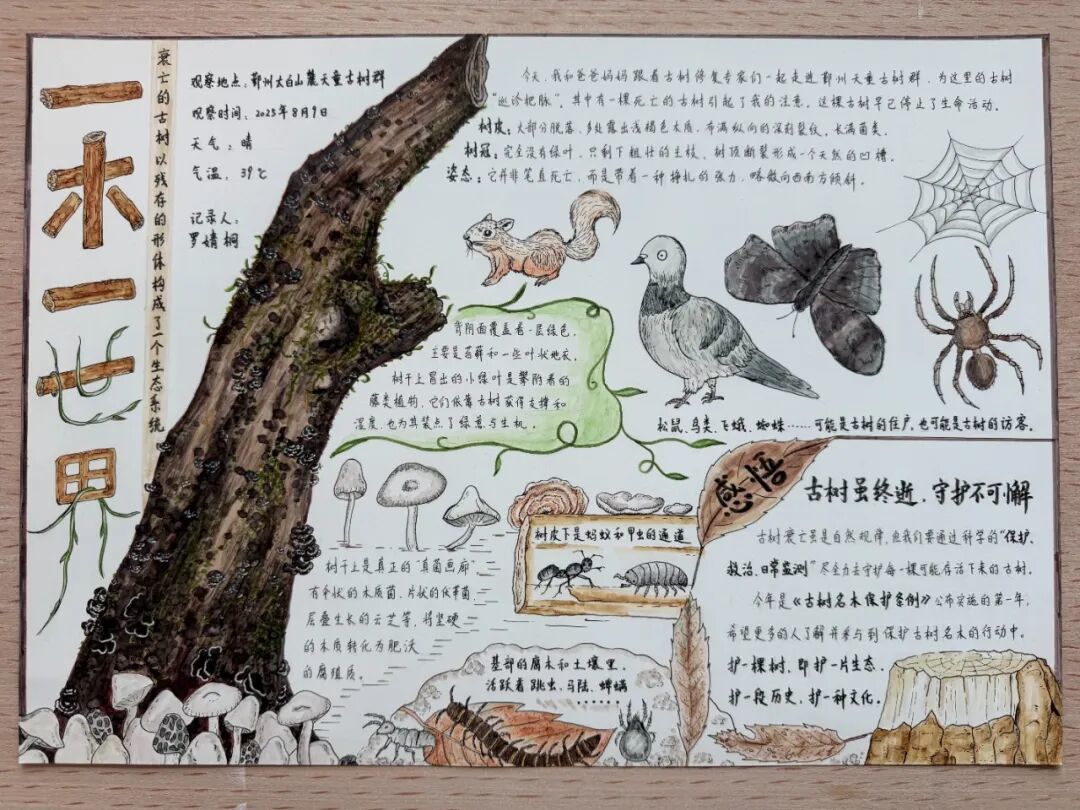 一木一世界
衰亡的古树以残存的形体构成了一个生态系统
观察地点：鄞州太白山麓天童古树群
观察时间：2025年8月9日
天气：晴
气温：39℃
记录人：
罗婧桐
今天，我和爸爸妈妈跟着古树修复专家们一起走进鄞州天童古树群，为这里的古树
“巡诊把脉”，其中有一棵死亡的古树引起了我的注意。这棵古树早已停止了生命活动。
树皮：大部分脱落，多处露出浅褐色木质，布满纵向的深刻裂纹，长满菌类。
树冠：完全没有绿叶，只剩下粗壮的主枝，树顶断裂形成一个天然的凹槽。
姿态：它并非笔直死亡，而是带着一种挣扎的张力，略微向西南方倾斜。
背阴面覆盖着一层绿色，
主要是苔藓和一些叶状地衣。
树干上冒出的小绿叶是攀附着的
藤类植物，它们依靠古树获得支撑和
湿度，也为其装点了绿意与生机。
松鼠、鸟类、飞蛾、蜘蛛……可能是古树的住户，也可能是古树的访客。
树干上是真正的“真菌画廊”
有伞状的木质菌、片状的伏革菌
层叠生长的云芝等，将坚硬
的木质转化为肥沃
的腐殖质。
树皮下是蚂蚁和甲虫的通道
基部的腐木和土壤里，
活跃着跳虫、马陆、蜱螨
……
感悟
古树虽终逝，守护不可懈
古树衰亡虽是自然规律，但我们要通过科学的“保护、
救治、日常监测”尽全力去守护每一棵可能存活下来的古树。
今年是《古树名木保护条例》公布实施的第一年，
希望更多的人了解并参与到保护古树名木的行动中。
护一棵树，即护一片生态，
护一段历史，护一种文化。